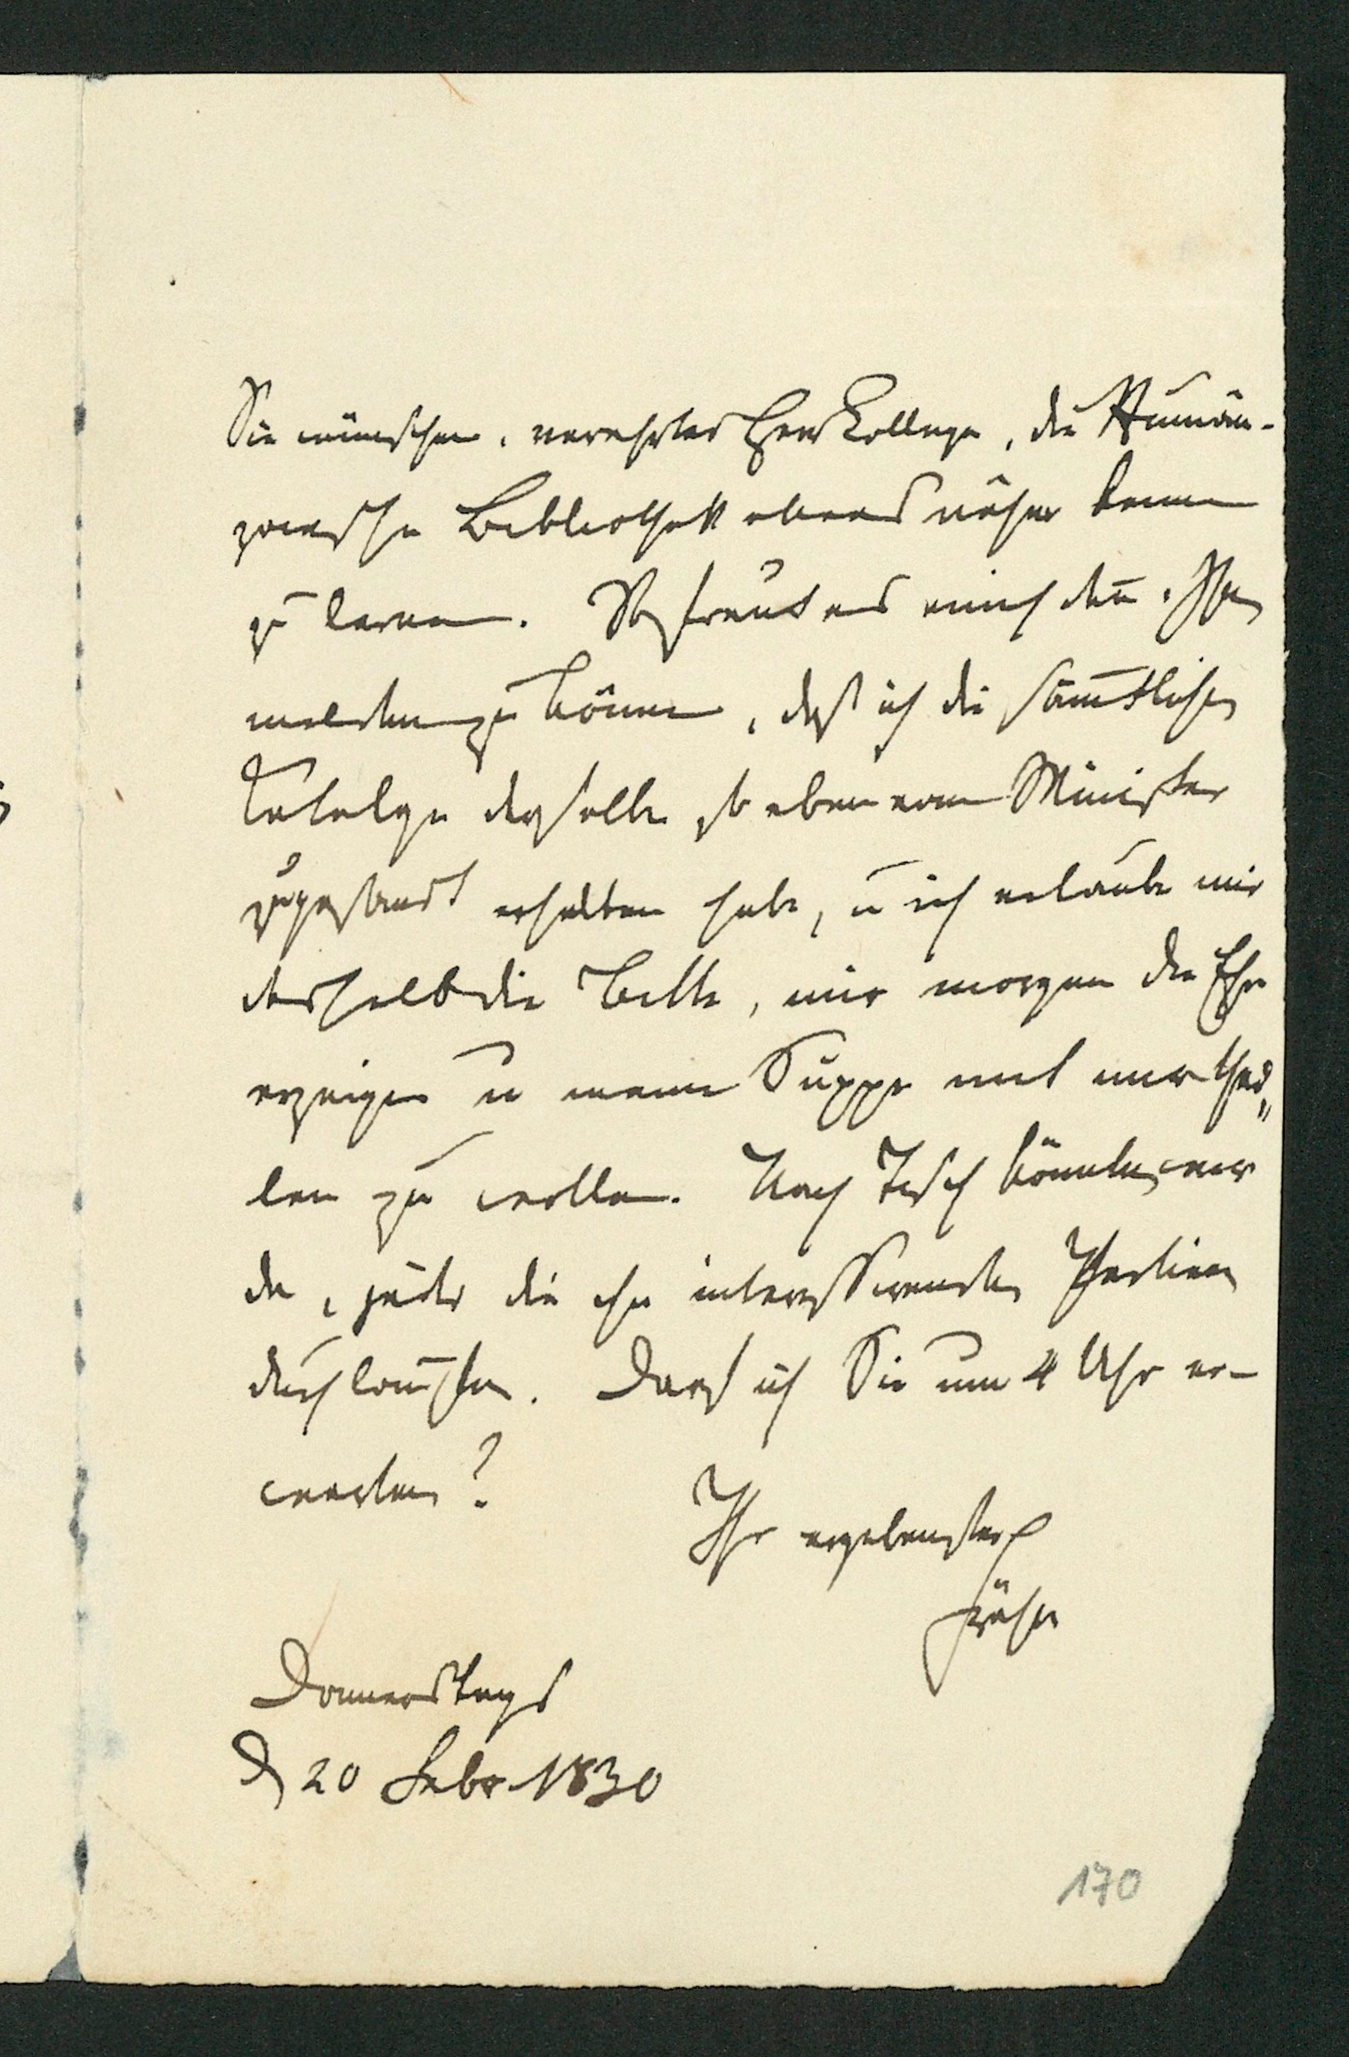 Sie wünschen, verehrter Herr Kollege, die Rumän-
zowsche Bibliothek etwas näher kennen
zu lernen. Es freut mich den̄, Ihnen
melden zu könen, daß ich die säm̄tlichen
Kataloge derselben so eben vom Minister
zugesandt erhalten habe, u ich erlaube mir
deshalb die Bitte, mir morgen die Ehre
erzeigen u meine Suppe mit mir thei„
len zu wollen. Nach Tisch könnten wir
da, jeder die ihn interessirenden Partien
durchlaufen. Darf ich Sie um 4 Uhr er-
warten?
Ihr ergebenster
Frähn
Donnerstags
d 20 Febr 1830
170